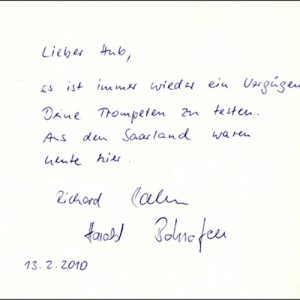 Lieber Hub,
es ist immer wieder ein Vergügen
Deine Trompeten zu testen.
Aus dem Saarland waren
heute hier.
Richard
Harald
13.2.2010